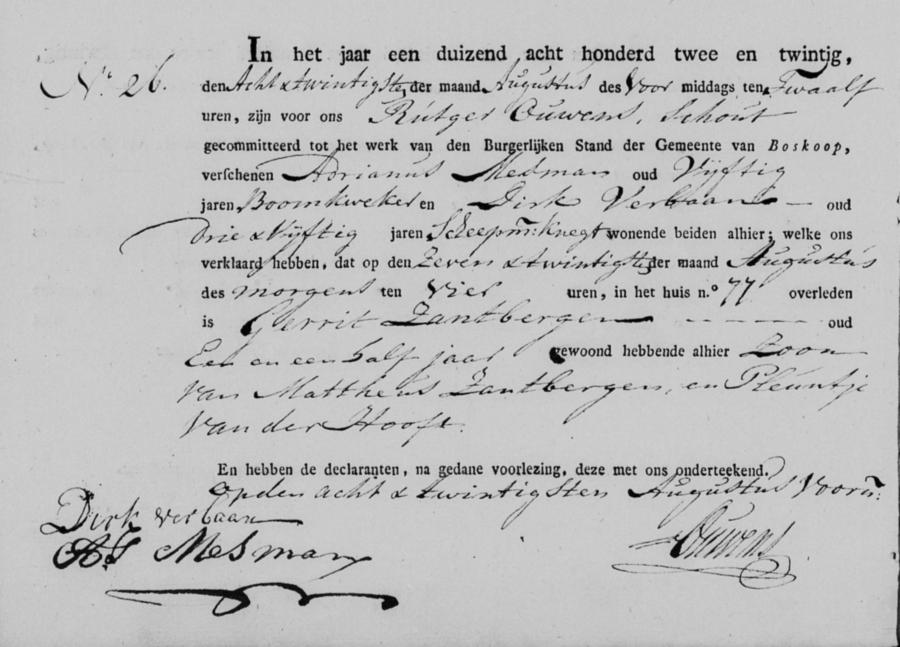 In het jaar een duizend acht honderd twee en twintig,
N.º 26. den Acht & twintigste der maand Augustus des Voor middags ten Twaalf
uren, zijn voor ons Rutger Ouwens, Schout
gecommitteerd tot het werk van den Burgerlijken Stand der Gemeente van Boskoop,
verschenen Adrianus Mesman oud Vyftig
jaren, Boomkweker en Dirk Verbaan — oud
Drie & Vyftig jaren Scheepm:Knegt wonende beiden alhier; welke ons
verklaard hebben, dat op den Zeven & twintigste der maand Augustus
des morgens ten Vier uren, in het huis n.º 77 overleden
is Gerrit Zantbergen — — — — oud
Een en een half jaar gewoond hebbende alhier Zoon
van Mattheus Zantbergen, en Pleuntje
van der Hooft.
En hebben de declaranten, na gedane voorlezing, deze met ons onderteekend.
op den acht & twintigsten Augustus Voorn:
Dirk verbaan
Mesman
Ouwens